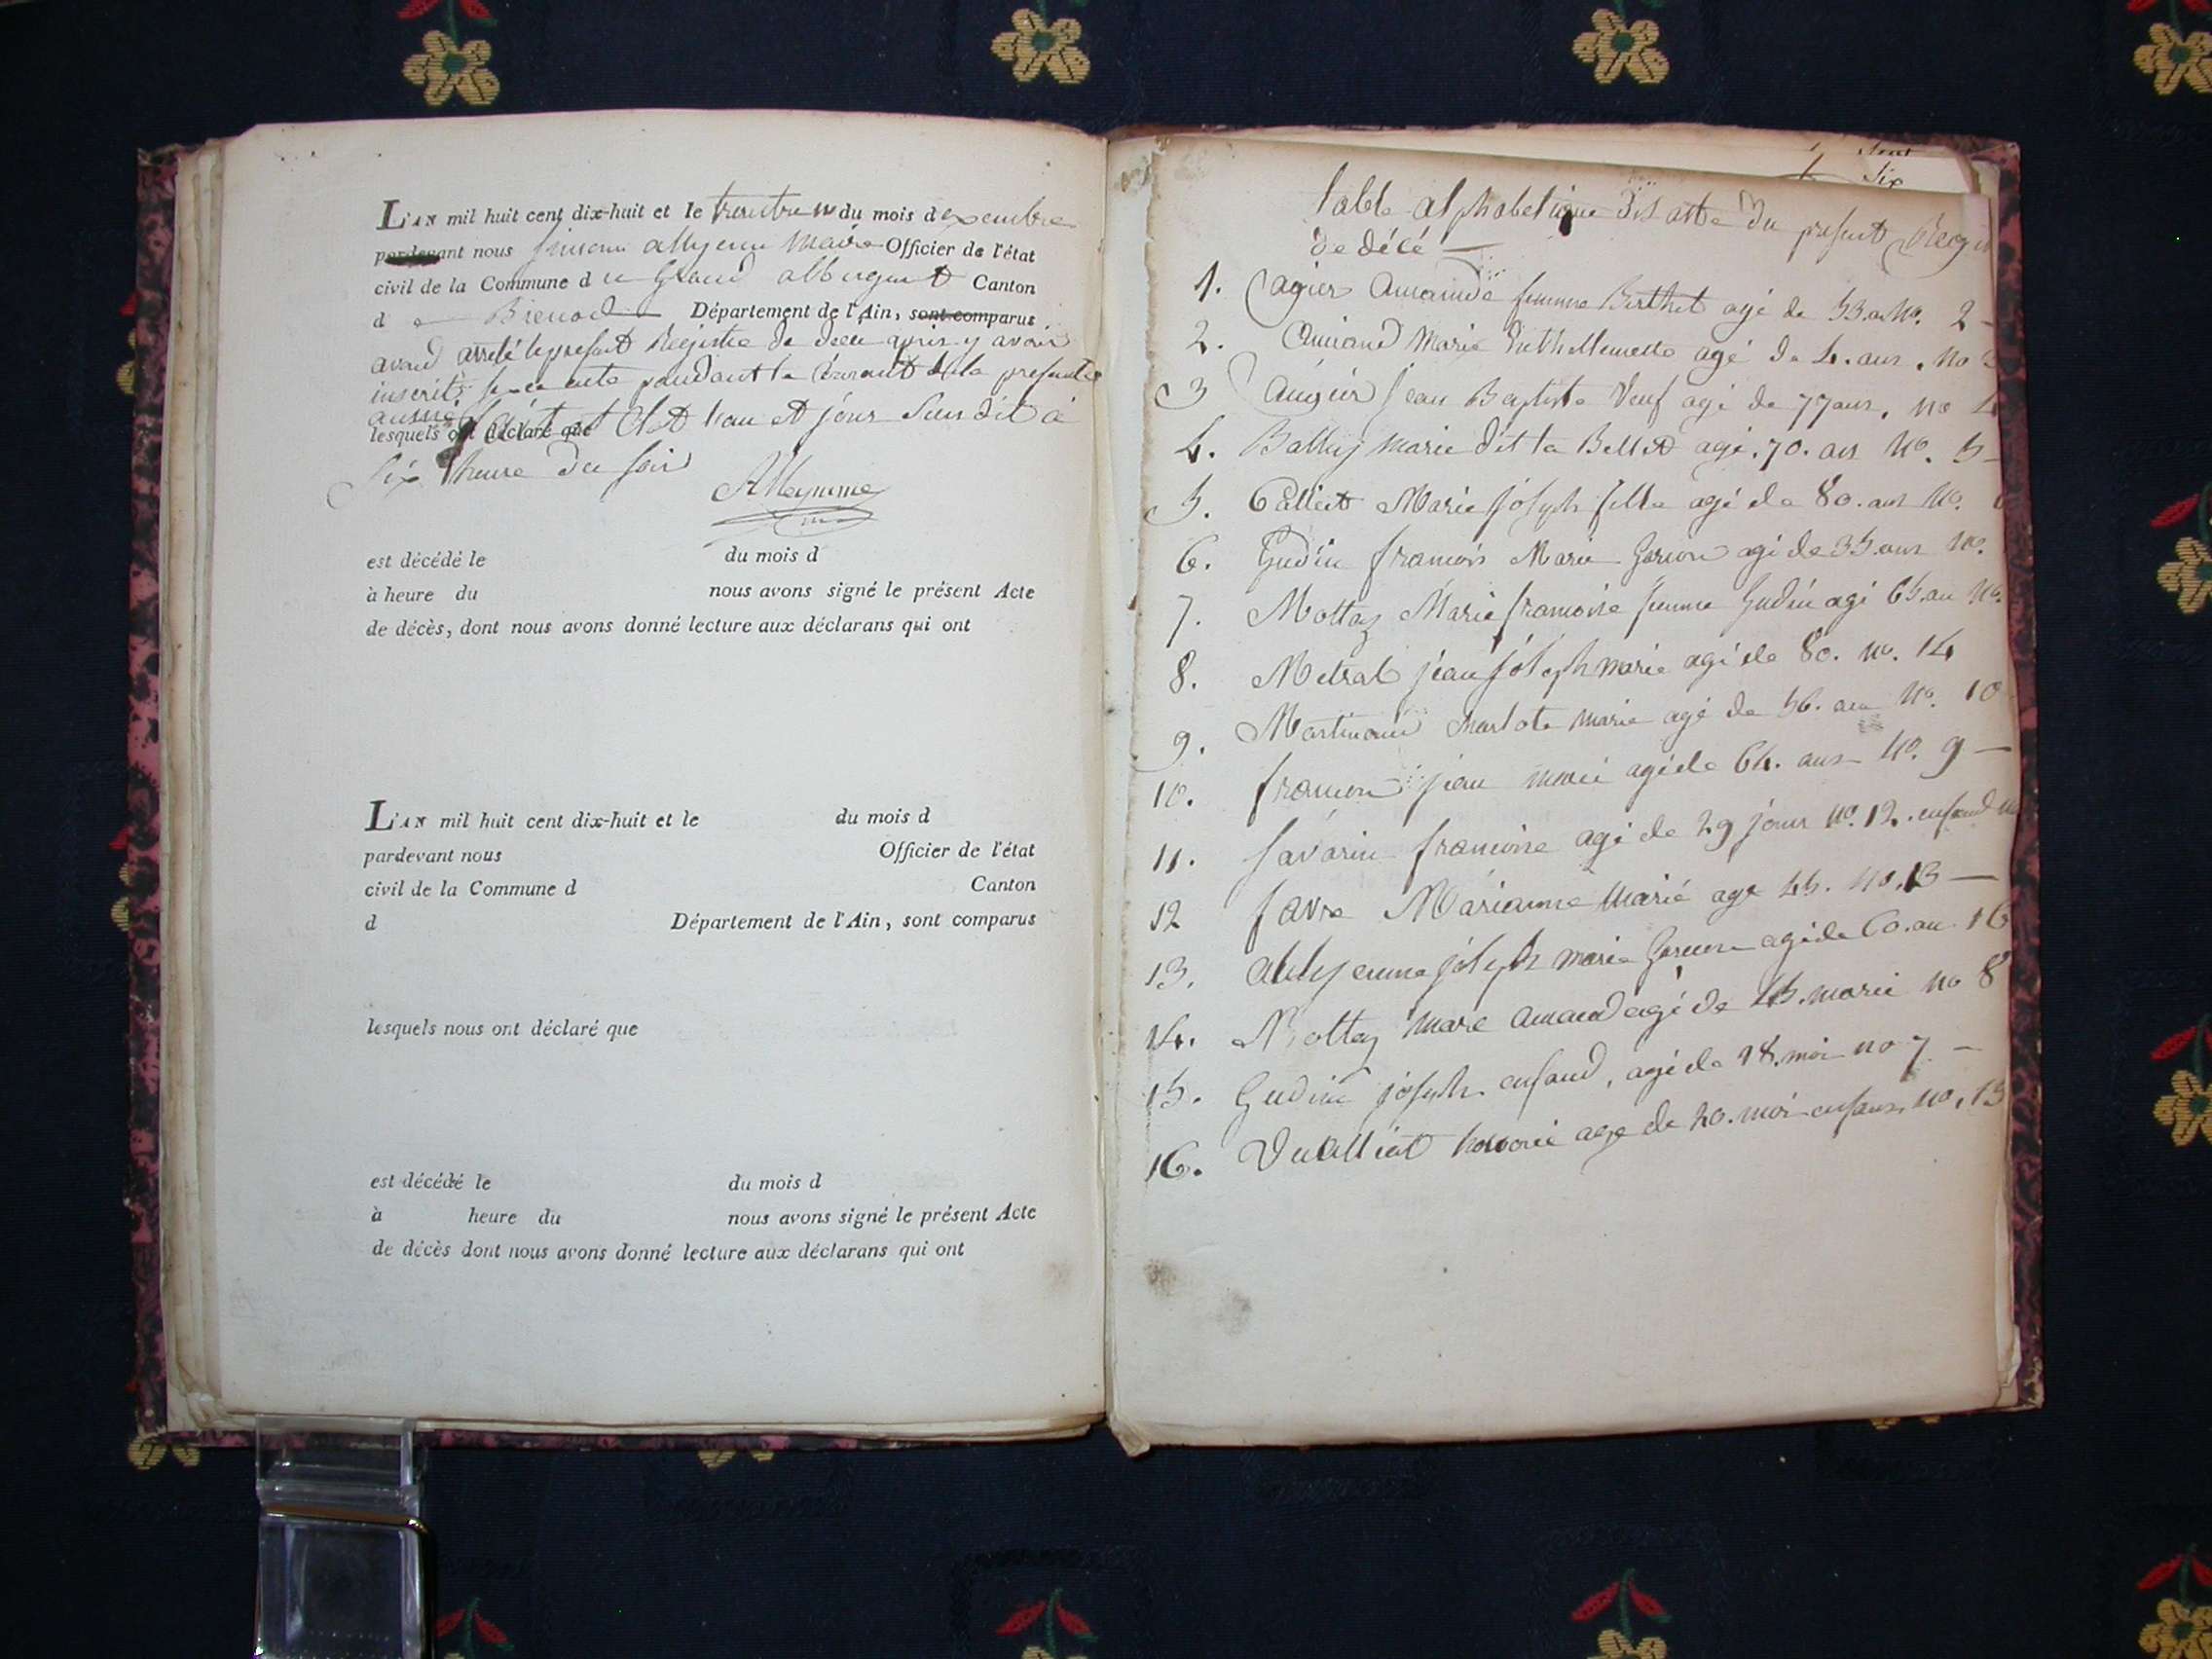 L'AN mil huit cent dix-huit et le trente un du mois de xembre
pardevant nous allyenne Maire Officier de l'état
civil de la Commune d u Grand abbergement Canton
d e Brenod Département de l'Ain, sont comparus
avons arrété le present Registre de décé apris y avoir
inscrit acte pandant le Courant de la presente
année
lesquels ont déclaré que l'an et jour Sus dit à
Six heure du soir
Alleynme
est décédé le du mois d
à heure du nous avons signé le présent Acte
de décès, dont nous avons donné lecture aux déclarans qui ont
L'AN mil huit cent dix-huit et le du mois d
pardevant nous Officier de l'état
civil de la Commune d Canton
d Département de l'Ain, sont comparus
lesquels nous ont déclaré que
est décédé le du mois d
à heure du nous avons signé le présent Acte
de décès dont nous avons donné lecture aux déclarans qui ont
Six
table alphabetique des acte du present Regis
de décé
1. agier femme Berthet agé de 53. an No. 2
2. Marie agé de 4. ans. no 3
3 Augier jean Baptiste Veuf agé de 77 ans, no 4
4. Balley marie dit la Bellet agé. 70. ans No. 5
5. Calliet Marie joseph fille agé de 80. ans No.
6. Gudin francois Marie Garson agé de 35 ans No.
7. Mottaz Marie francoise femme Gudin agé 65. an No.
8. Metral jean joseph marié agé de 80. no. 14
9. Martinand Charlote marie agé de 56. ans No. 10
10. francon jean marié agé de 64. ans No. 9
11. Savarin francoise agé de 29 jours No. 12. enfand
12 favre Marianne Marié age 45. No. 13
13. allyenne joseph marie Garson agé de 60. an 16
14. Mottaz marc amand agé de 45. marié no 8
15. Gudin joseph enfand, agé de 18. moi no 7
16. Vuilliat honoré age de 20. moi enfans, no. 15